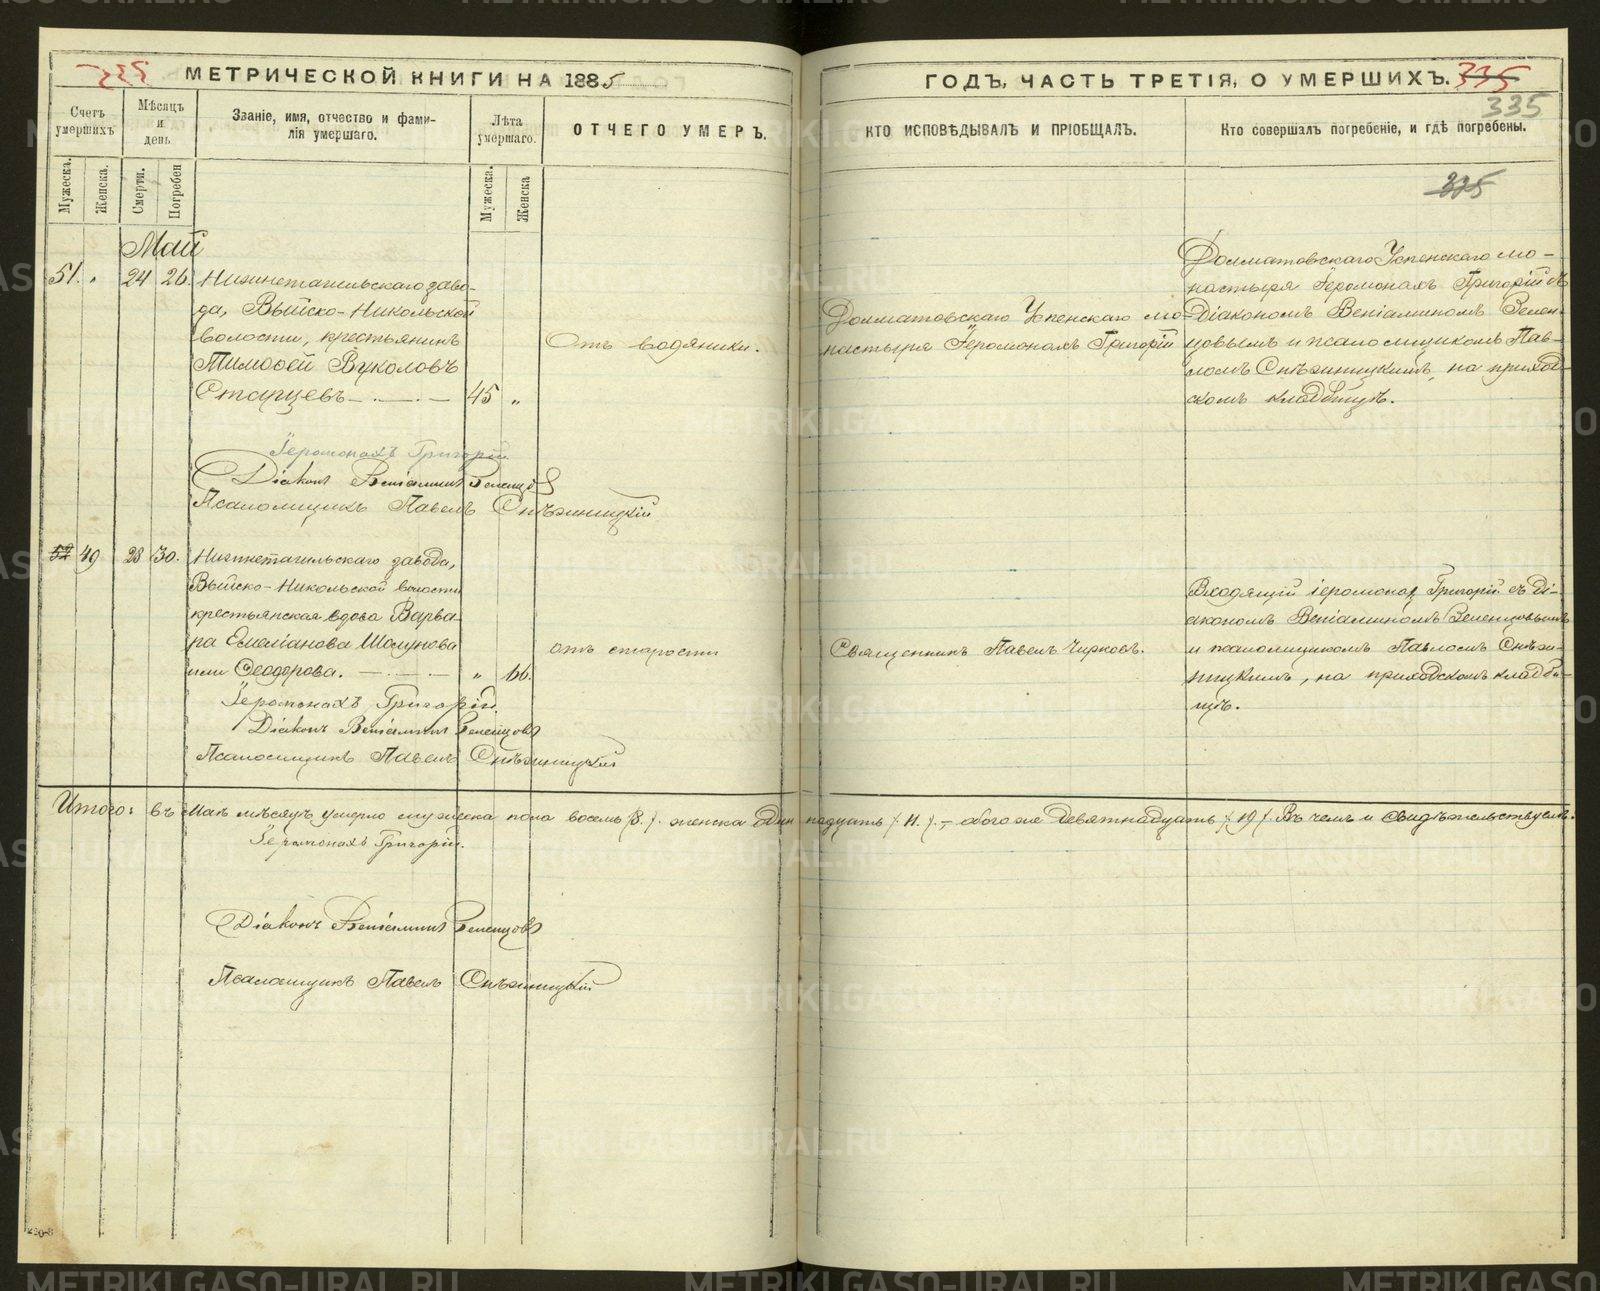 335 МЕТРИЧЕСКОЙ КНИГИ НА 1885
ГОДЪ, ЧАСТЬ ТРЕТІЯ, О УМЕРШИХЪ. 335
335
335
Счетъ умершихъ
Мѣсяцъ и день
Званіе, имя, отчество и фами-
лія умершаго.
Лѣта умершаго.
ОТЧЕГО УМЕРЪ.
КТО ИСПОВѢДЫВАЛЪ И ПРІОБЩАЛЪ.
Кто совершалъ погребеніе, и гдѣ погребены.
Мужеска.
Женска.
Смерти.
Погребен
Мужеска.
Женска
Май
51. „ 24 26. Нижнетагильскаго заво-
да, Выйско-Никольской
волости, крестьянинъ
Тимоѳей Вуколовъ
Старцевъ 45 „
Отъ водяники.
Долматовскаго Успенскаго мо-
настыря Іеромонахъ Григорій
Долматовскаго Успенскаго мо-
настыря Іеромонахъ Григорій съ
Діакономъ Веніаминомъ Зелен-
цовымъ и псаломщикомъ Пав-
ломъ Снѣжницкимъ, на приход-
скомъ кладбищѣ.
Іеромонахъ Григорій
Діаконъ Веніаминъ Зеленцовъ
Псаломщикъ Павелъ Снѣжницкій
52 49 28 30. Нижнетагильскаго завода,
Выйско-Никольской волости
крестьянская вдова Варва-
ра Емеліанова Шолунова
или Ѳеодорова. „ 66.
отъ старости
Священникъ Павелъ Чирковъ.
Входящій іеромонах Григорій съ ді-
акономъ Веніаминомъ Зеленцовымъ
и псаломщикомъ Павломъ Снѣж-
ницкимъ, на приходскомъ кладби-
щѣ.
Іеромонахъ Григорій.
Діаконъ Веніаминъ Зеленцовъ
Псаломщикъ Павелъ Снѣжницкій
Итого: въ Маѣ мѣсяцѣ умерло мужеска пола восемь /8./. женска одиннадцать /11./. – обоего же девятнадцать /19/ Въ чемъ и свидѣтельствуемъ.
Іеромонахъ Григорій.
Діаконъ Веніаминъ Зеленцовъ
Псаломщикъ Павелъ Снѣжницкій
METRIKI.GASO-URAL.RU